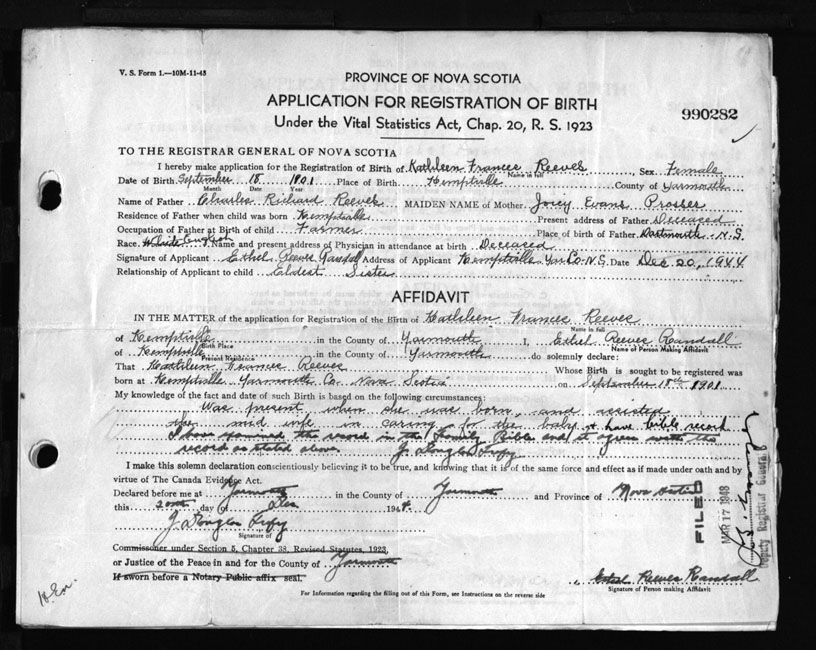 V. S. Form 1.—10M-11-43
PROVINCE OF NOVA SCOTIA
APPLICATION FOR REGISTRATION OF BIRTH
990282
Under the Vital Statistics Act, Chap. 20, R. S. 1923
TO THE REGISTRAR GENERAL OF NOVA SCOTIA
I hereby make application for the Registration of Birth of Kathleen Frances Reeves, Sex Female
Name in full
Date of Birth September 18 1901 Place of Birth Kemptville County of Yarmouth
Month Date Year
Name of Father Charles Richard Reeves MAIDEN NAME of Mother Joicy Evans Prosser
Residence of Father when child was born Kemptville Present address of Father Deceased
Occupation of Father at Birth of Child Farmer Place of Birth of Father Dartmouth N.S.
Race White English Name and present address of Physician in attendance at birth Deceased
Signature of Applicant Ethel Reeves Randall Address of Applicant Kemptville Yar Co. N.S. Date Dec 20, 1944
Relationship of Applicant to child Eldest Sister
AFFIDAVIT
IN THE MATTER of the application for Registration of the Birth of Kathleen Frances Reeves
Name in full
of Kemptville in the County of Yarmouth I, Ethel Reeves Randall
Birth Place Name of Person Making Affidavit
of Kemptville in the County of Yarmouth do solemnly declare:
Present Residence
That Kathleen Frances Reeves Whose Birth is sought to be registered was
born at Kemptville Yarmouth Co Nova Scotia on September 18th 1901
My knowledge of the fact and date of such Birth is based on the following circumstances:
Was present when she was born, and assisted
the mid wife in caring for the baby & have bible record
I have examined the record in the Family Bible and it agrees with the
record as stated above. J. Douglas
I make this solemn declaration conscientiously believing it to be true, and knowing that it is of the same force and effect as if made under oath and by
virtue of The Canada Evidence Act.
Declared before me at Yarmouth in the County of Yarmouth and Province of Nova Scotia
this 20th day of Dec 194
J. Douglas
Signature of
Commissoner under Section 5, Chapter 38, Revised Statutes, 1923,
or Justice of the Peace in and for the County of Yarmouth
If sworn before a Notary Public affix seal.
Ethel Reeves Randall
Signature of Person making Affidavit
For Information regarding the filling out of this Form, see Instructions on the reverse side
FILED
MAR 17 1948
Deputy Registrar General